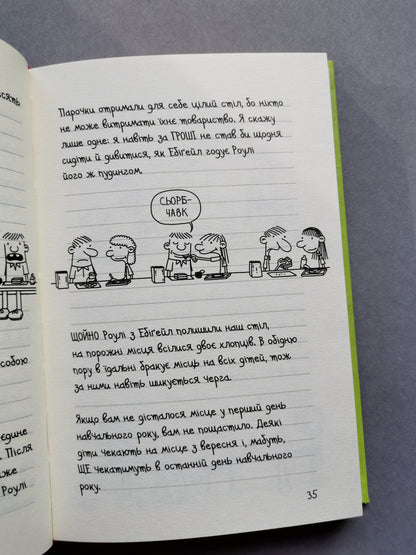 сять
собою
єдине
. Після
йже
Роулі
Парочки отримали для себе цілий стіл, бо ніхто
не може витримати їхнє товариство. Я скажу
лише одне: я навіть за ГРОШІ не став би щодня
сидіти й дивитися, як Ебіґейл годує Роулі
його ж пудингом.
СЬОРБ-
ЧАВК
ЩОЙНО Роулі з Ебіґейл полишили наш стіл,
на порожні місця всілися двоє хлопців. В обідню
пору в їдальні бракує місць на всіх дітей, тож
за ними навіть шикується черга.
Якщо вам не дісталося місце у перший день
навчального року, вам не пощастило. Деякі
діти чекають на місце з вересня і, мабуть,
ЩЕ чекатимуть в останній день навчального
року.
35